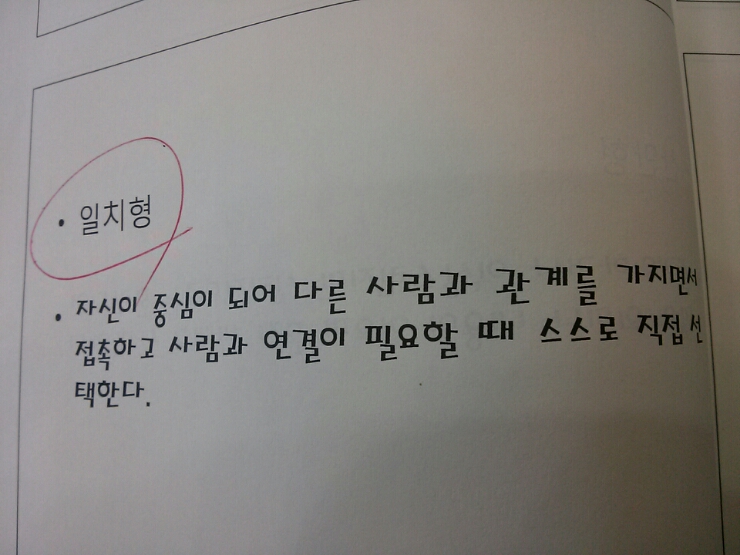 • 일치형
• 자신이 중심이 되어 다른 사람과 관계를 가지면서
접촉하고 사람과 연결이 필요할 때 스스로 직접 선
택한다.